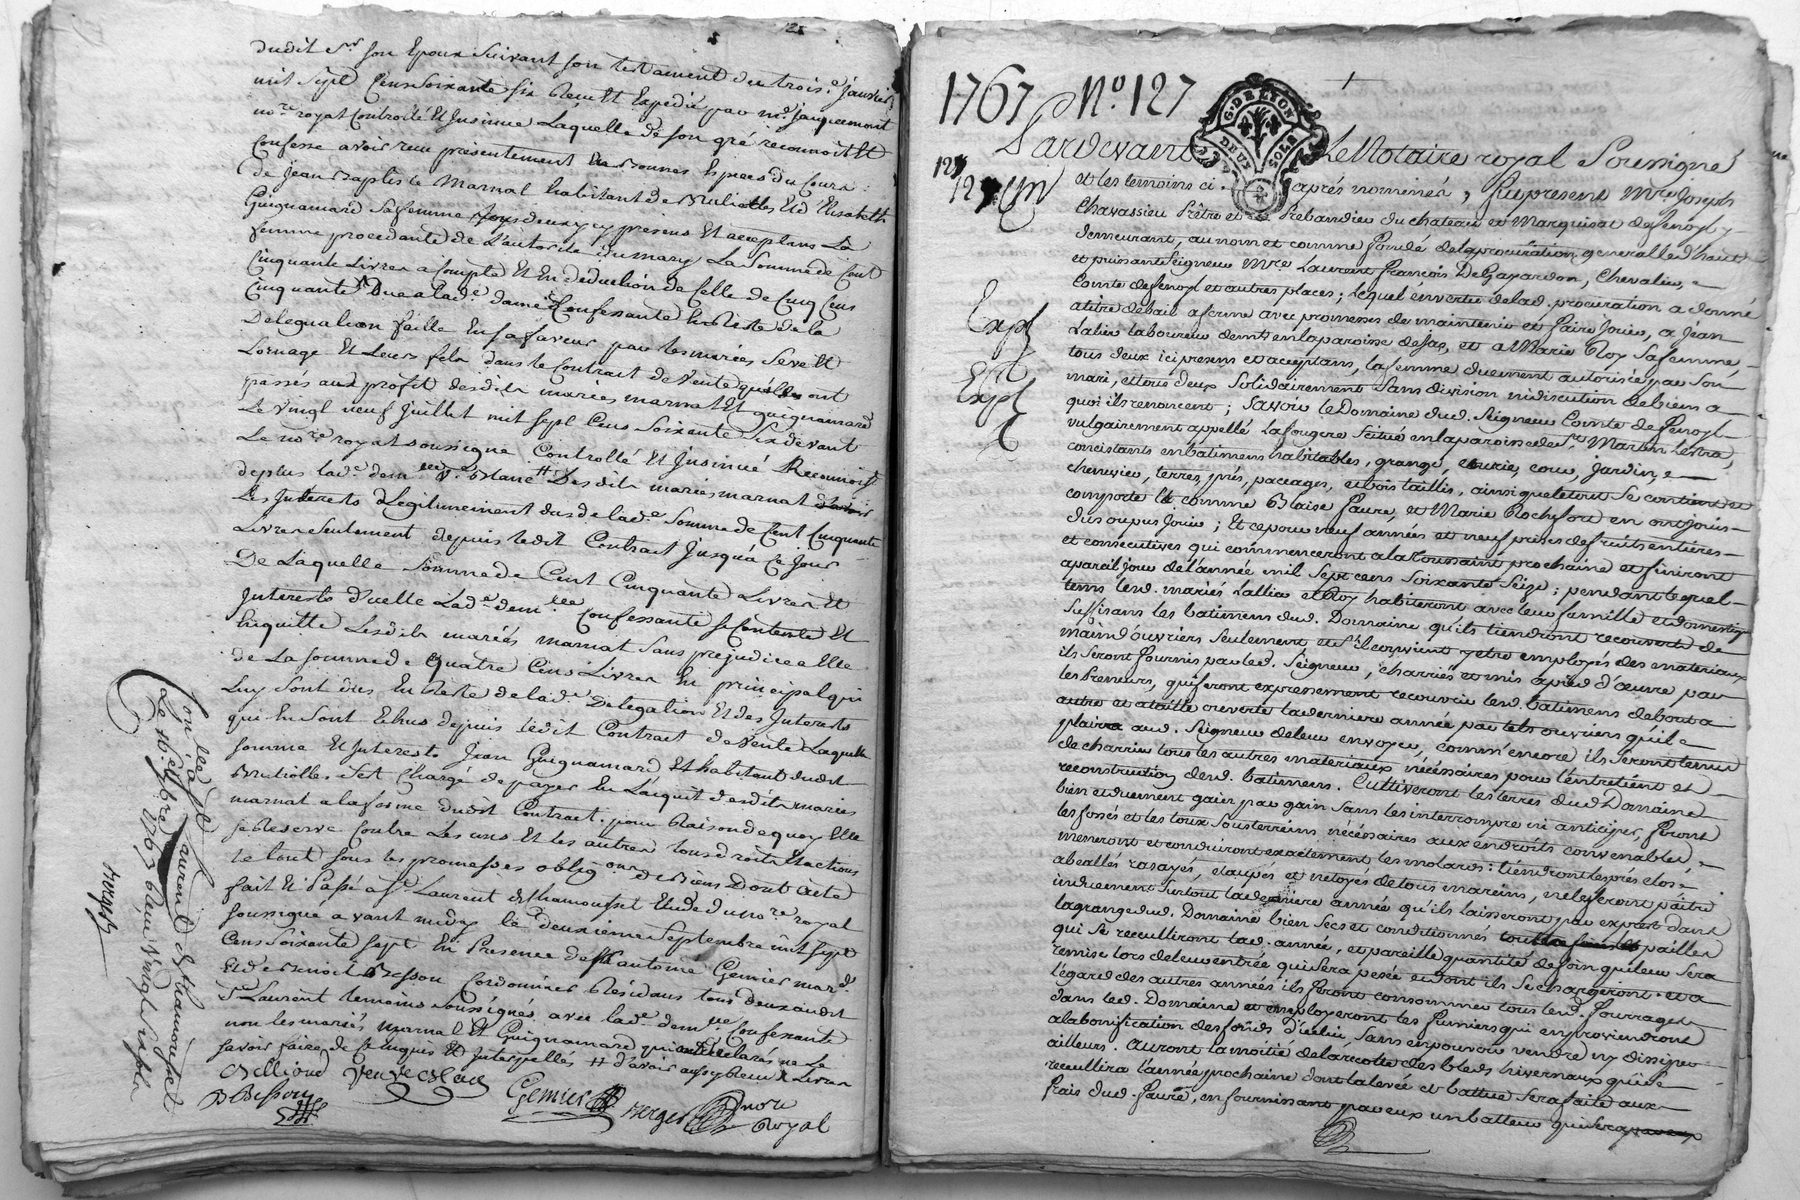 dudit Sr son Epoux suivant son testament du trois.e janvier
mil sept Cens soixante six Receu Et Expedié par me jacquemont
no.re royal Controllé Et Jnsinue Laquelle de son gré reconnoit Et
Confesse avoir reçu présentement En Bonnes Espèces du Cours
de jean Baptiste Marnat habitant de Et d'Elisabeth
Guignamard Sa femme tous deux cy presens Et acceptans La
femme procedante de L'autorité du mary La Somme de Cent
Cinquante Livres a Compte Et En deduction de Celle de Cinq Cens
Cinquante Due a lad.e dame Confessante En Reste de la
Delegation faitte En sa faveur par les mariés Seve Et
Lornage Et Leurs fils dans le Contract de Vente quilles ont
passés au profit desdits mariés marnat Et guignamard
Le vingt neuf juillet mil sept Cens Soixante Six devant
Le no.re royal soussigné Controllé Et Jnsinué Reconnoit
deplus lad.e dem.lle V.e Blanc # Desdits mariés marnat
Les Jnterets Legitimement dus de lad.e Somme de Cent Cinquante
Livres Seulement depuis ledit Contract jusqu'à Ce jour
De Laquelle Somme de Cent Cinquante Livres Et
Jnterets d'icelle Lad.e dem.lle Confessante se Contente Et
En quitte Lesdits mariés marnat Sans prejudice a Elle
de La Somme de quatre Cens Livres En principal qui
Luy Sont dus En Reste de lad.e Delegation Et des Jnterets
qui En Sont Echus depuis ledit Contract de Vente Laquelle
somme Et Jnterets jean Guignamard Et habitant dudit
Est Chargé de payer En L'acquit desdits mariés
marnat a la forme dudit Contract. pour Raison de quoy Elle
se Reserve Contre Les uns Et les autres tous droits Et actions
le tout sous les promesses oblig.ons de Biens Dont acte
fait Et Passé a St Laurent de Chamousset Etude du no.re royal
soussigné avant midy le deuxieme Septembre mil sept
Cens Soixante Sept En Presence de Sr antoine Gemier mar.d
Et de Benoit Besson Cordonnier Residans tous deux audit
St Laurent temoins soussignés avec lad.e dem.lle Confessante
non les mariés marnat Et Guignamard qui ont declarés ne le
savoir faire de Ce Enquis Et Jnterpellés # d'avoir
veuve Blanc
B Besson Gemier Berger no.re Royal
Con.llé a St Laurent de Chamousset
Le 16. 7.bre 1767
Berger
1767 No. 127
G. DE LYON
DEUX SOLS
Pardevant Le Notaire royal Soussigné
127
et les temoins ci après nommés, fut present Mre Joseph
Chavassieu Prêtre et Prébandier du château et Marquisat de fenoyl y
demeurant, au nom et comme fondé de la procuration generalle d'haut
et puissant Seigneur Mre Laurent François De Gayardon, Chevalier,
Comte de fenoyl et autres places; lequel én vertu de lad. procuration a donné
a titre de bail a ferme avec promesses de maintenir et faire jouir, a Jean
Lalier laboureur demt en la paroisse de , et a Marie Roy sa femme,
tous deux ici presens et acceptans, la femme duement autorisée par son
mari, et tous deux solidairement sans division ni discution de biens a
quoi ils renoncent; Savoir le Domaine dud. Seigneur Comte de fenoyl
vulgairement appellé La fougere Scitué en la paroisse de St Martin Lestra,
concistants en batimens habitables, grange, écurie, cour, jardin,
chenevier, terres, prés, paceages, et bois taillis, ainsi que le tout se contient et
comporte et comme Blaise faure, et Marie Rochefort en ont jouis
du ou pus jouir; et ce pour neuf années et neuf prises de fruits entières
et consécutives qui commenceront a la toussaint prochaine et finiront
a pareil jour de l'année mil sept cens soixante seize; pendant lequel
tems lesd. mariés Lallier et Roy habiteront avec leur famille et domestiq.
suffisans les batimens dud. Domaine qu'ils tiendront recouverts de
main d'ouvriers seulement et s'il convient y etre employés des materiaux
ils seront fournis par led. Seigneur, charriés et mis a pied d'œuvre par
les Preneurs, qui feront expressement recouvrir lesd. batimens de bout a
autre et a taille ouverte la derniere année par tels ouvriers qu'il
plaira aud. Seigneur de leur envoyer, comm'encore ils seront tenus
de charrier tous les autres materiaux nécéssaires pour l'entretient et
reconstruction desd. batimens. Cultiveront les terres dud. Domaine
bien et duement gain par gain sans les interrompre ni anticiper, feront
les fossés et les toux souterreins nécéssaires aux endroits convenables,
meneront et conduiront exactement les molards: tiendront les prés clos
abeallés rasayés, étaupés et netoyés de tous mareins, ne les feront paître
induement surtout la derniere année qu'ils laisseront par exprès dans
la grange dud. Domaine bien secs et conditionnés pailles
qui se recullliront lad. année, et pareille quantité de foin qui leur sera
remise lors de leur entrée qui sera pesée et dont ils se chargeront. et a
l'égard des autres années ils feront consommer tous lesd. fourrages
dans led. Domaine et employeront les fumiers qui en proviendront
a la bonification des fonds d'icelui, sans en pouvoir vendre ny dissiper
ailleurs. Auront la moitié de la récolte des bleds hivernaux qui se
recullira l'année prochaine dont la levée et battue sera faite aux
frais dud. faure, en fournissant par eux un batteur
Expé
Expé